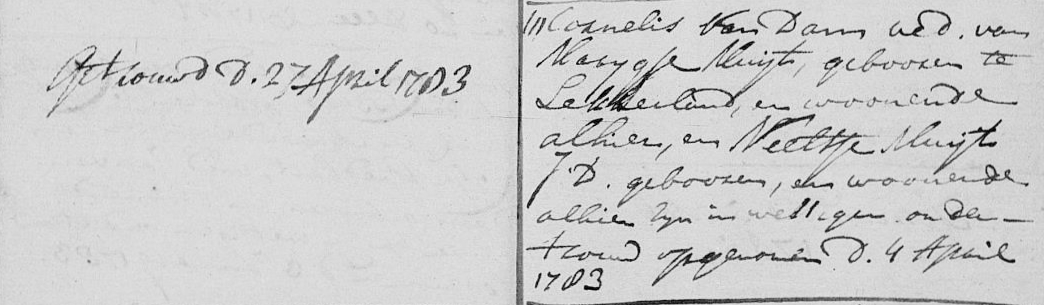 Getrouwd D. 27 April 1783
Cornelis Van Dam wed. van
Marygje Kluijt, gebooren te
Lekkerland, en woonende
alhier, en Neeltje Kluijt
J.D. gebooren, en woonende
alhier zyn in wettigen onder-
trouw opgenomen D. 4 April
1783